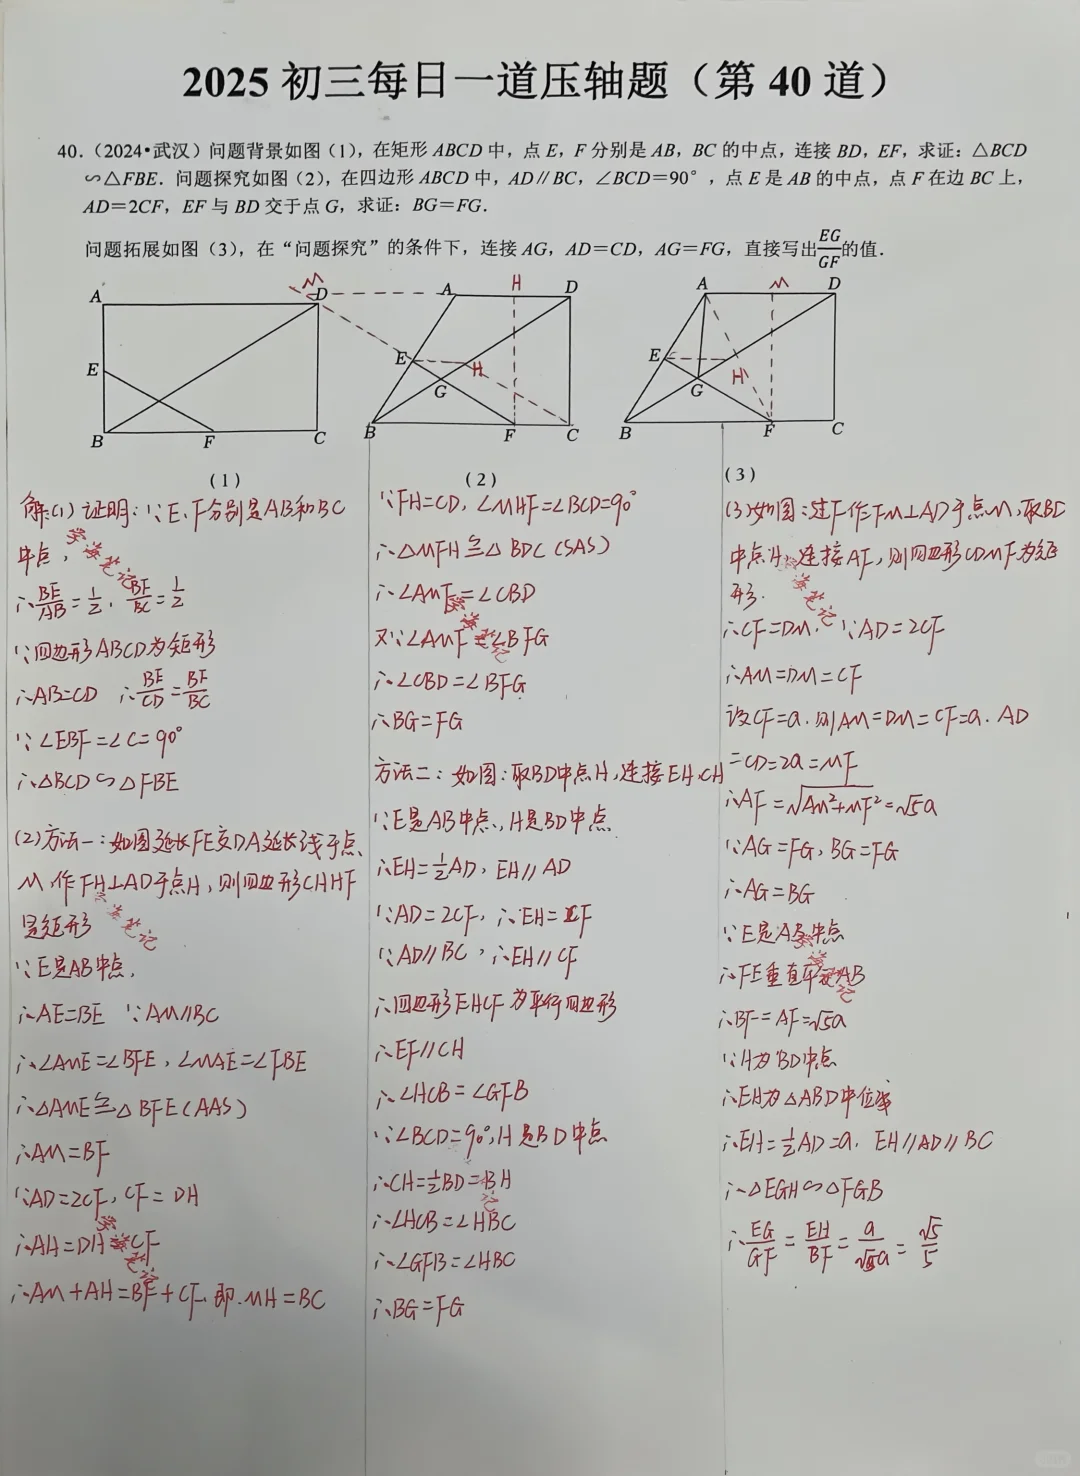 2025 初三每日一道压轴题（第 40 道）
40.（2024•武汉）问题背景如图（1），在矩形 ABCD 中，点 E，F 分别是 AB，BC 的中点，连接 BD，EF，求证：△BCD
∽△FBE．问题探究如图（2），在四边形 ABCD 中，AD∥BC，∠BCD=90°，点 E 是 AB 的中点，点 F 在边 BC 上，
AD=2CF，EF 与 BD 交于点 G，求证：BG=FG．
问题拓展如图（3），在“问题探究”的条件下，连接 AG，AD=CD，AG=FG，直接写出EG/GF的值．
A D E B F C
M D A H D E H G B F C
A M D E H G B F C
（1）
（2）
（3）
解:(1) 证明:∵E、F分别是AB和BC
中点，
∴BE/AB=1/2，BF/BC=1/2
∵四边形ABCD为矩形
∴AB=CD ∴BE/CD=BF/BC
∵∠EBF=∠C=90°
∴△BCD∽△FBE
(2)方法一:如图延长FE交DA延长线于点
M,作FH⊥AD于点H,则四边形CHHF
是矩形
∵E是AB中点,
∴AE=BE ∵AM//BC
∴∠AME=∠BFE,∠MAE=∠FBE
∴△AME≌△BFE(AAS)
∴AM=BF
∵AD=2CF,CF=DH
∴AH=DH=CF
∴AM+AH=BF+CF,即.MH=BC
∵FH=CD,∠MHF=∠BCD=90°
∴△MFH≌△BDC(SAS)
∴∠AMF=∠CBD
又∵∠AMF=∠BFG
∴∠CBD=∠BFG
∴BG=FG
方法二:如图:取BD中点H,连接EH,CH
∵E是AB中点,H是BD中点
∴EH=1/2AD,EH//AD
∵AD=2CF,∴EH=CF
∵AD//BC,∴EH//CF
∴四边形EHCF为平行四边形
∴EF//CH
∴∠HCB=∠GFB
∵∠BCD=90°,H是BD中点
∴CH=1/2BD=BH
∴∠HCB=∠HBC
∴∠GFB=∠HBC
∴BG=FG
(3)如图:过F作FM⊥AD于点M,取BD
中点H,连接AF,则四边形CDMF为矩
形.
∴CF=DM. ∵AD=2CF
∴AM=DM=CF
设CF=a.则AM=DM=CF=a.AD
=CD=2a=MF
∴AF=√AM²+MF²=√5a
∵AG=FG,BG=FG
∴AG=BG
∵E是AB中点
∴FE垂直平分AB
∴BF=AF=√5a
∵H为BD中点
∴EH为△ABD中位线
∴EH=1/2AD=a. EH//AD//BC
∴△EGH∽△FGB
∴EG/GF=EH/BF=a/√5a=√5/5
学海笔记
学海笔记
学海笔记
学海笔记
学海笔记
学海笔记